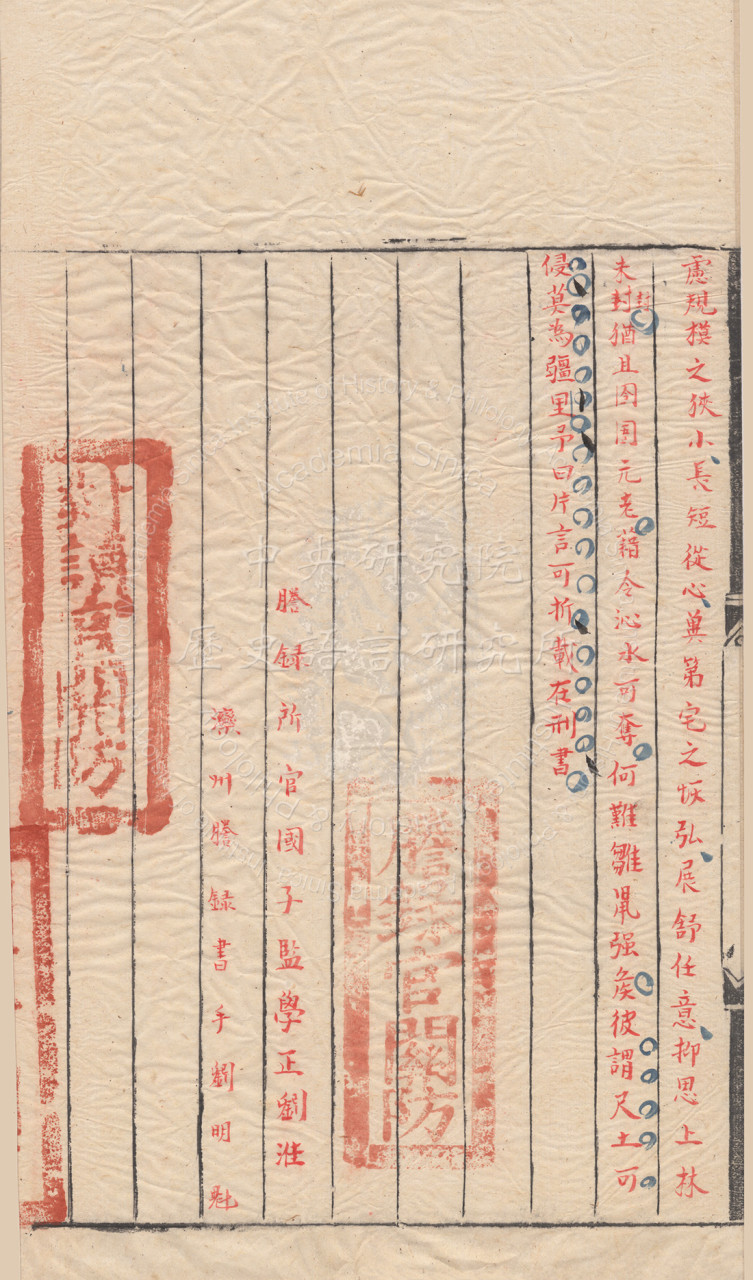 慮規模之狹小長短從心㒷第宅之恢弘展舒任意抑思上林
未封猶且囹圄元老藉令沁水可奪何難雛鼠强矦彼謂尺土可
侵莫為疆里予曰片言可折載在刑書
謄録所官國子監學正劉泩
濼州謄録書手劉明魁
謄錄官關防
對讀官關防
中央研究院
歷史語言研究所
Institute of History & Philology
Academia Sinica